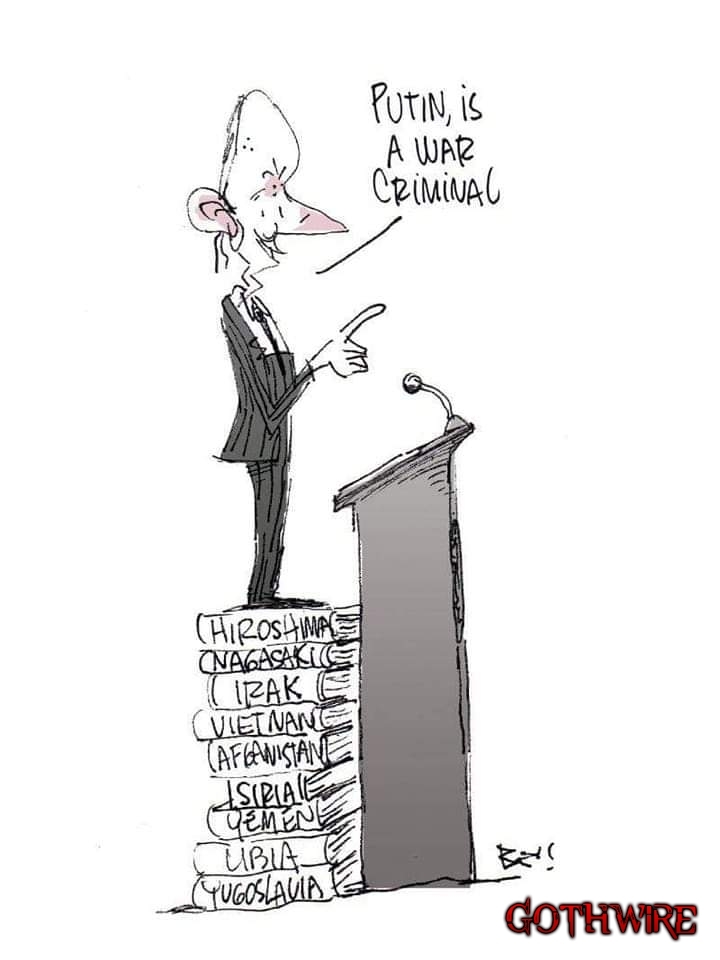 PUTIN, iS
A WAR
CRiMiNAL
HIROSHIMA
NAGASAKI
IRAK
VIETNAN
AFGANISTAN
SIRIA
YEMEN
LIBIA
YUGOSLAVIA
GOTHWIRE